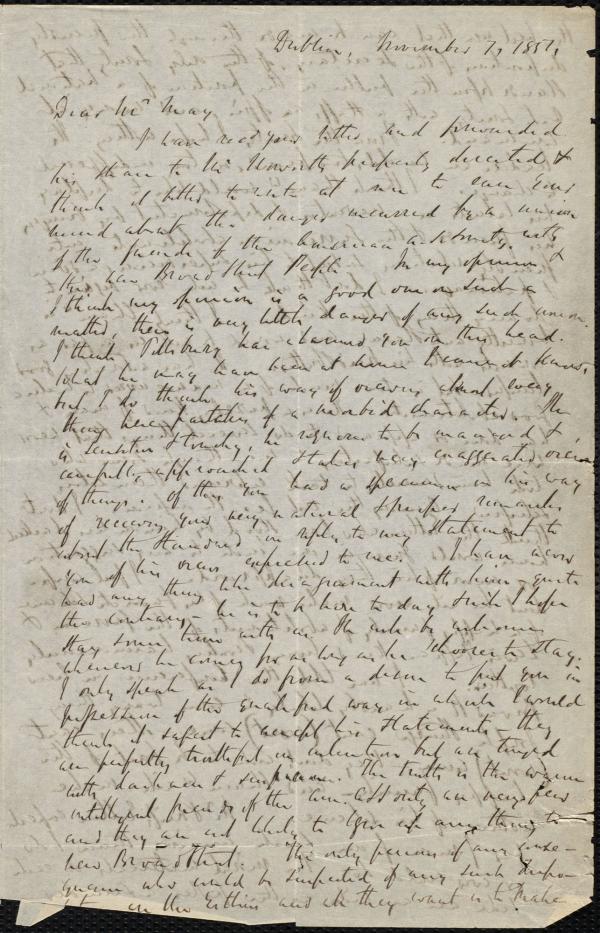 Dublin, November 7, 1857,
Dear Mr May
I have recd your letter and forwarded
his share to Mr Haworth properly directed &
think it better to write at once to ease your
mind about the danger incurred by a union
of the friends of the American A.S. Society with
the New Broad Street People. In my opinion &
I think my opinion is a good one on such a
matter, there is very little danger of any such union.
I think Pillsbury has alarmed you on this head.
What he may have been at home I cannot know,
but I do think his way of viewing almost every
thing here partakes of a morbid character. He
is sensitive & touchy, he requires to be managed &
carefully approached & takes very exaggerated views
of things. Of this you had a specimen in his way
of receiving your very natural & proper remarks
about the Standard in reply to my statement to
you of his views expressed to me. I have never
had any thing like disagreement with him - quite
the contrary - he is to be here to day & will I hope
stay some time with us. He will be welcome
whenever he comes for as long as he chooses to stay.
I only speak as I do from a desire to put you in
possession of the qualified way in which I would
think it safest to accept his statements - they
are perfectly truthful in intention but are tinged
with darkness & suspicion. The truth is the warm
intelligent friends of the Am. A.S. Socty are very few
and they are not likely to give up any thing to
New Broad Street. The only persons of any conse-
quence who could be suspected of any such dispo-
in the Estlins and all they want is to make